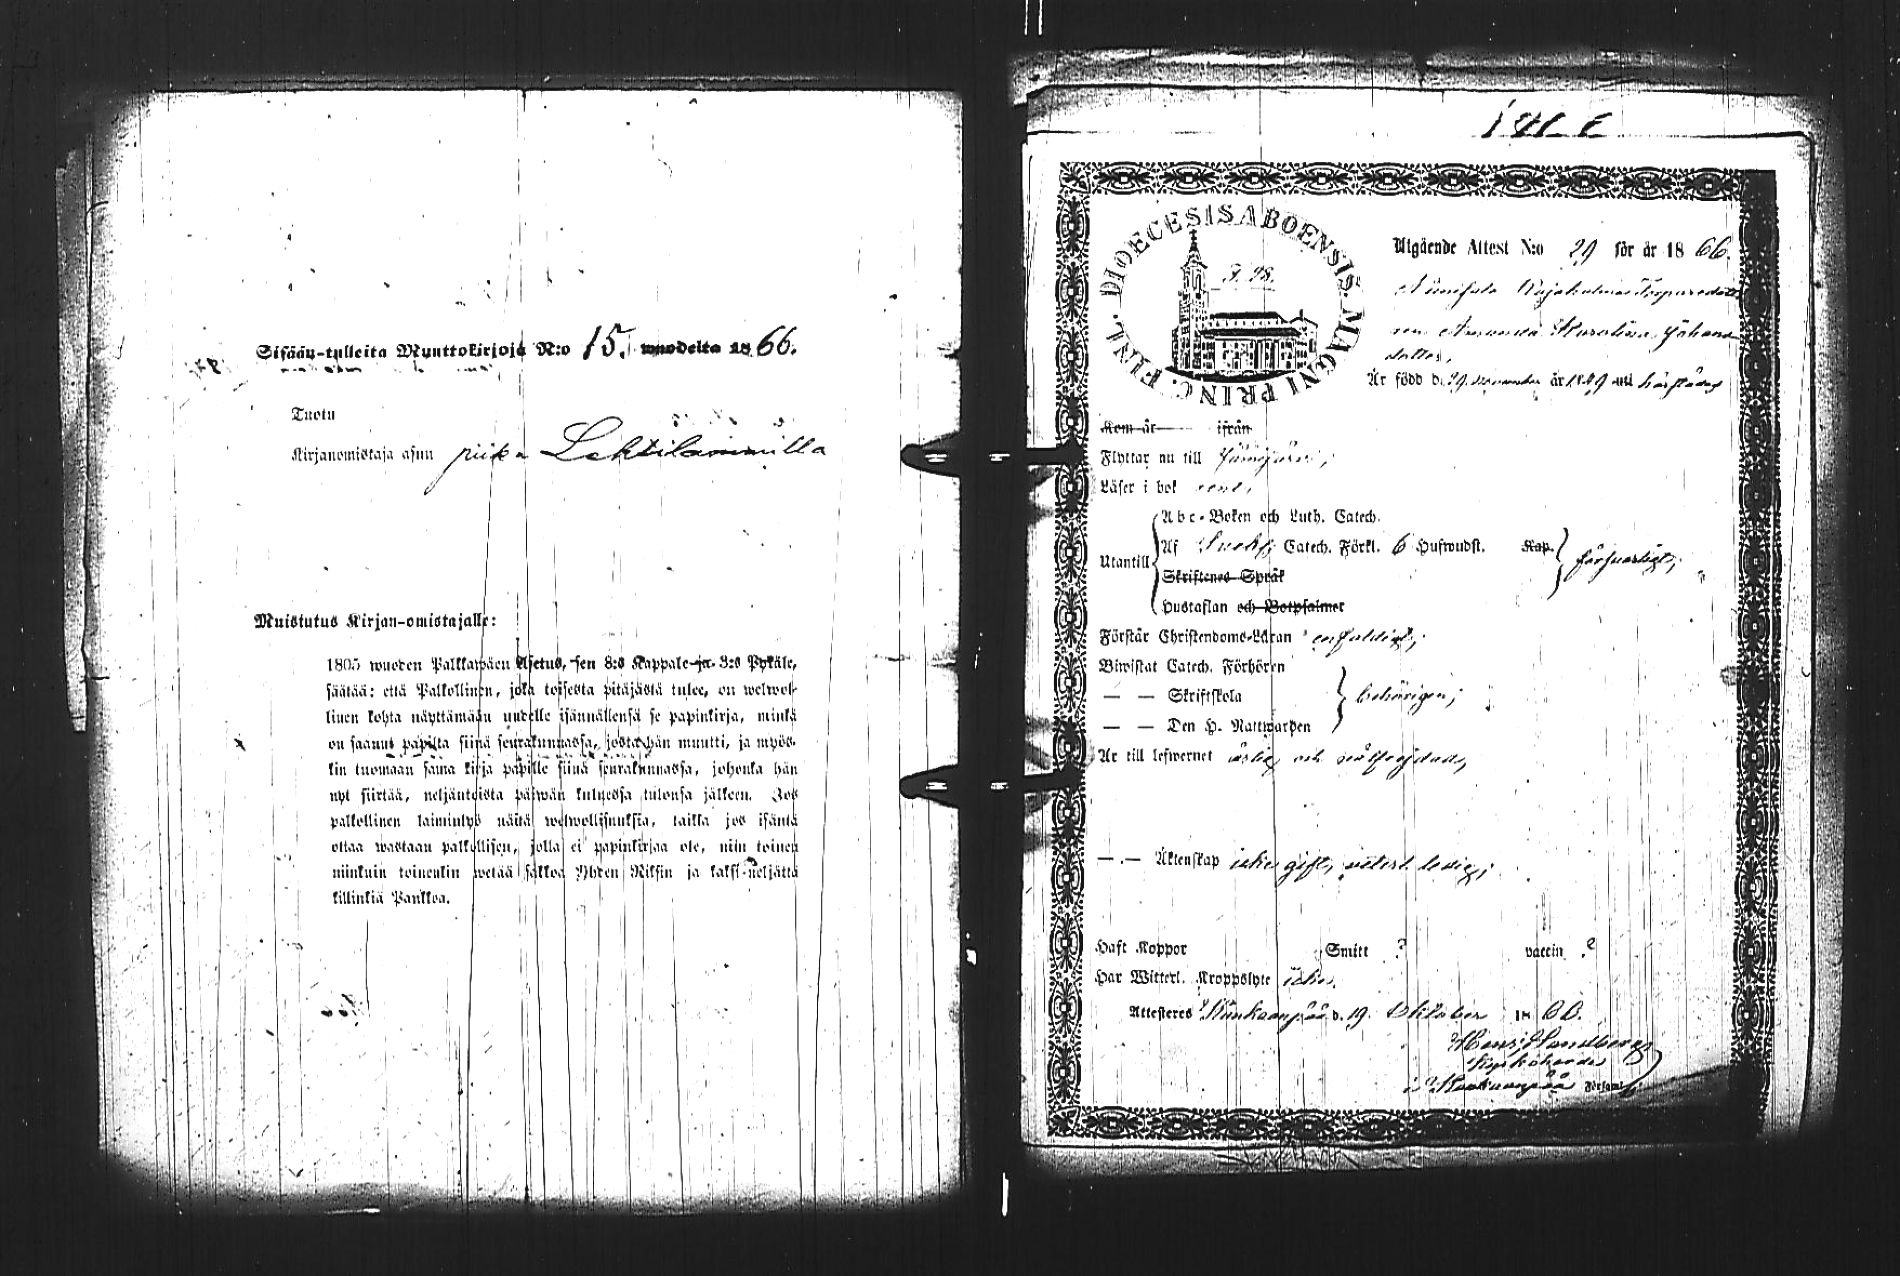 Sisään-tulleita Muuttokirjoja N:o 15. wuodelta 1866.
Tuotu
Kirjanomistaja asuu piika Lehtilammilla
Muistutus Kirjan-omistajalle:
1805 wuoden Palkkawäen Asetus, sen 8:s Kappale ja 3:s Pykäle,
säätää: että Palkollinen, joka toisesta pitäjästä tulee, on welwol-
linen kohta näyttämään uudelle isännällensä se papinkirja, minkä
on saanut papilta siinä seurakunnassa, josta hän muutti, ja myös-
kin tuomaan sama kirja papille siinä seurakunnassa, johonka hän
nyt siirtää, neljäntoista päiwän kuluessa tulonsa jälkeen. Jos
palkollinen laiminlyö näitä welwollisuuksia, taikka jos isäntä
ottaa wastaan palkollisen, jolla ei papinkirjaa ole, niin toinen
niinkuin toinenkin wetää sakkoa Yhden Riksin ja kaksi-neljättä
killinkiä Pankkoa.
DIOECESIS ABOENSIS. MAGNI PRINC. FINL.
Utgående Attest N:o 29 för år 1866.
Amanda Karolina Johans
dotter,
Är född d. 29 November år 1849 uti härstädes
Kom år ifrån
Flyttar nu till Jämijärvi;
Läser i bok rent,
Abc-Boken och Luth. Catech.
Utantill Af Catech. Förkl. 6 Hufwudst. Kap. försvarligt;
Skriftenes Språk
Hustaflan och Botpsalmer
Förstår Christendoms-Läran enfaldigt;
Biwistat Catech. Förhören
— — Skriftskola behörigen;
— — Den H. Nattwarden
Är till lefwernet ärlig och wälfrejdad,
— — Äktenskap icke gift, ledig;
Haft Koppor Smitt ? vaccin ?
Har Witterl. Kroppslyte icke.
Attesteras Kankaanpää d. 19 Oktober 1866.
Sandberg
Kyrkoherde
i Kankaanpää Församl.